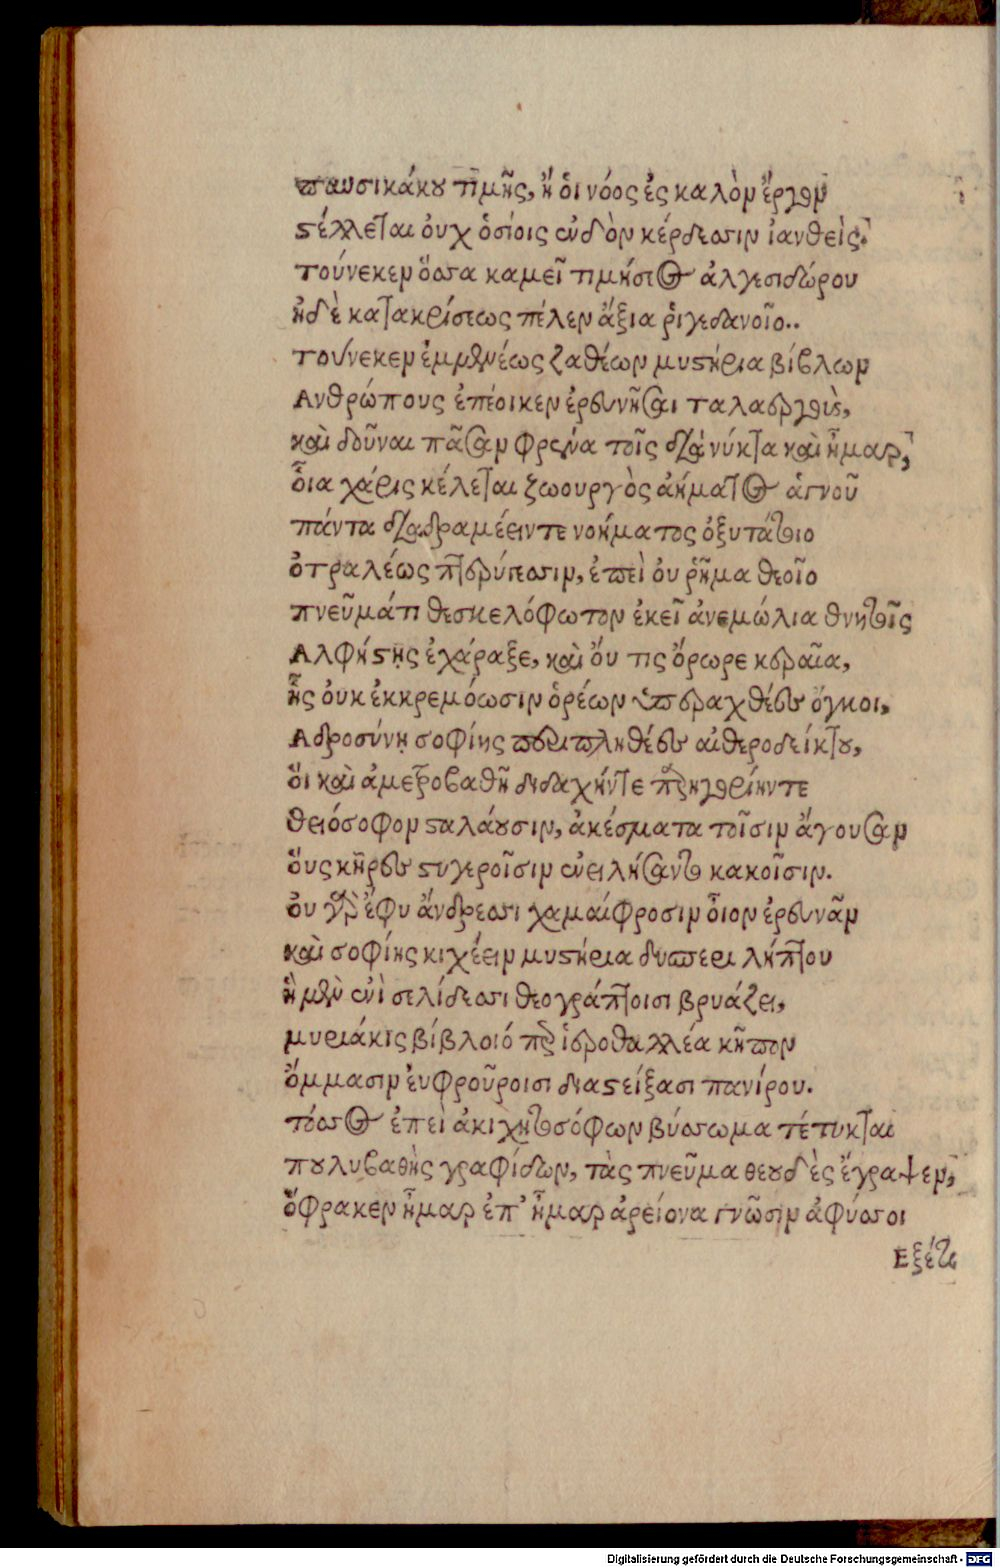 παυσικάκου τιμῆς, ἤ οἱ νόος ἐς καλὸν ἔργον
στέλλεται οὐχ ὁσίοις ἔνδον κέρδεσσιν ἰανθεὶς.
τούνεκεν ὅσσα καμεῖ τιμήσιος ἀλγεσιδώρου
ἠδὲ κατακρίσεως πέλεν ἄξια ῥιγεδανοῖο..
τούνεκεν ἐμμενέως ζαθέων μυστήρια βίβλων
Ανθρώπους ἐπέοικεν ἐρευνῆσαι ταλαεργοὺς,
καὶ δοῦναι πᾶσαν φρένα τοῖς διὰ νύκτα καὶ ἦμαρ,
οἷα χάρις κέλεται ζωουργὸς ἀήματος ἁγνοῦ
πάντα διαδραμέειν τε νοήματος ὀξυτάτοιο
ὀτραλέως πτερύγεσσιν, ἐπεὶ οὐ ῥῆμα θεοῖο
πνεῦμά τι θεσκελόφωτον ἐκεῖ ἀνεμώλια θνητοῖς
Αλφήστης ἐχάραξε, καὶ οὔ τις ὄρωρε κεραῖα,
ἧς οὐκ ἐκκρεμόωσιν ὀρέων ὑπεραχθέες ὄγκοι,
Αδροσύνη σοφίης περιπληθέες αἰθεροδείκτου,
οἵ καὶ ἀμετροβαθῆ διδαχήν τε παρηγορίην τε
θειόσοφον σταλάουσιν, ἀκέσματα τοῖσιν ἄγουσαν
οὕς κῆρες στυγεροῖσιν ἐνειλήσαντο κακοῖσιν.
οὐ γὰρ ἔφυ ἄνδρεσσι χαμαίφροσιν οἷον ἐρευνᾶν
καὶ σοφίης κιχέειν μυστήρια δυσπεριλήπτου
ἣ μὲν ἐνὶ σελίδεσσι θεογράπτοισι βρυάζει,
μυριάκις βίβλοιό περ ἱεροθαλλέα κῆπον
ὄμμασιν εὐφρούροισι διαστείξασι πανίρου.
τόσσος ἐπεὶ ἀκιχητοσόφων βύσσωμα τέτυκται
πουλυβαθὴς γραφίδων, τὰς πνεῦμα θεουδὲς ἔγραψεν,
ὄφρα κεν ἦμαρ ἐπ' ἦμαρ ἀρείονα γνῶσιν ἀφύσσοι
Εξέτι
Digitalisierung gefördert durch die Deutsche Forschungsgemeinschaft - DFG